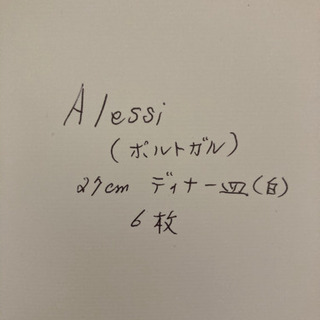 Alessi
(ポルトガル)
27cm ディナー皿(白)
6枚